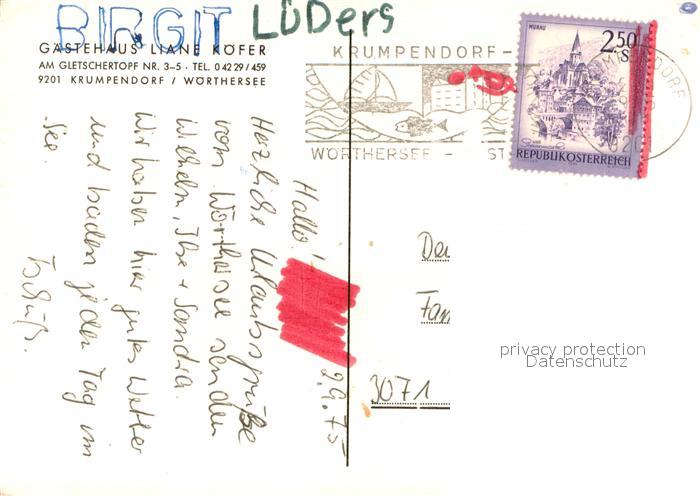 BIRGIT LÜDERS
GÄSTEHAUS LIANE KÖFER
AM GLETSCHERTOPF NR. 3–5 · TEL. 0 42 29 / 459
9201 KRUMPENDORF / WÖRTHERSEE
KRUMPENDORF –
WÖRTHERSEE – ST
MURAU
2.50
S
REPUBLIK ÖSTERREICH
Hallo!
2.9.75
Herzliche Urlaubsgrüße
vom Wörthersee senden
+ Sandra.
Wir haben hier gutes Wetter
und baden jeden Tag im
See.
Tschüß.
Fam
3071
privacy protection
Datenschutz